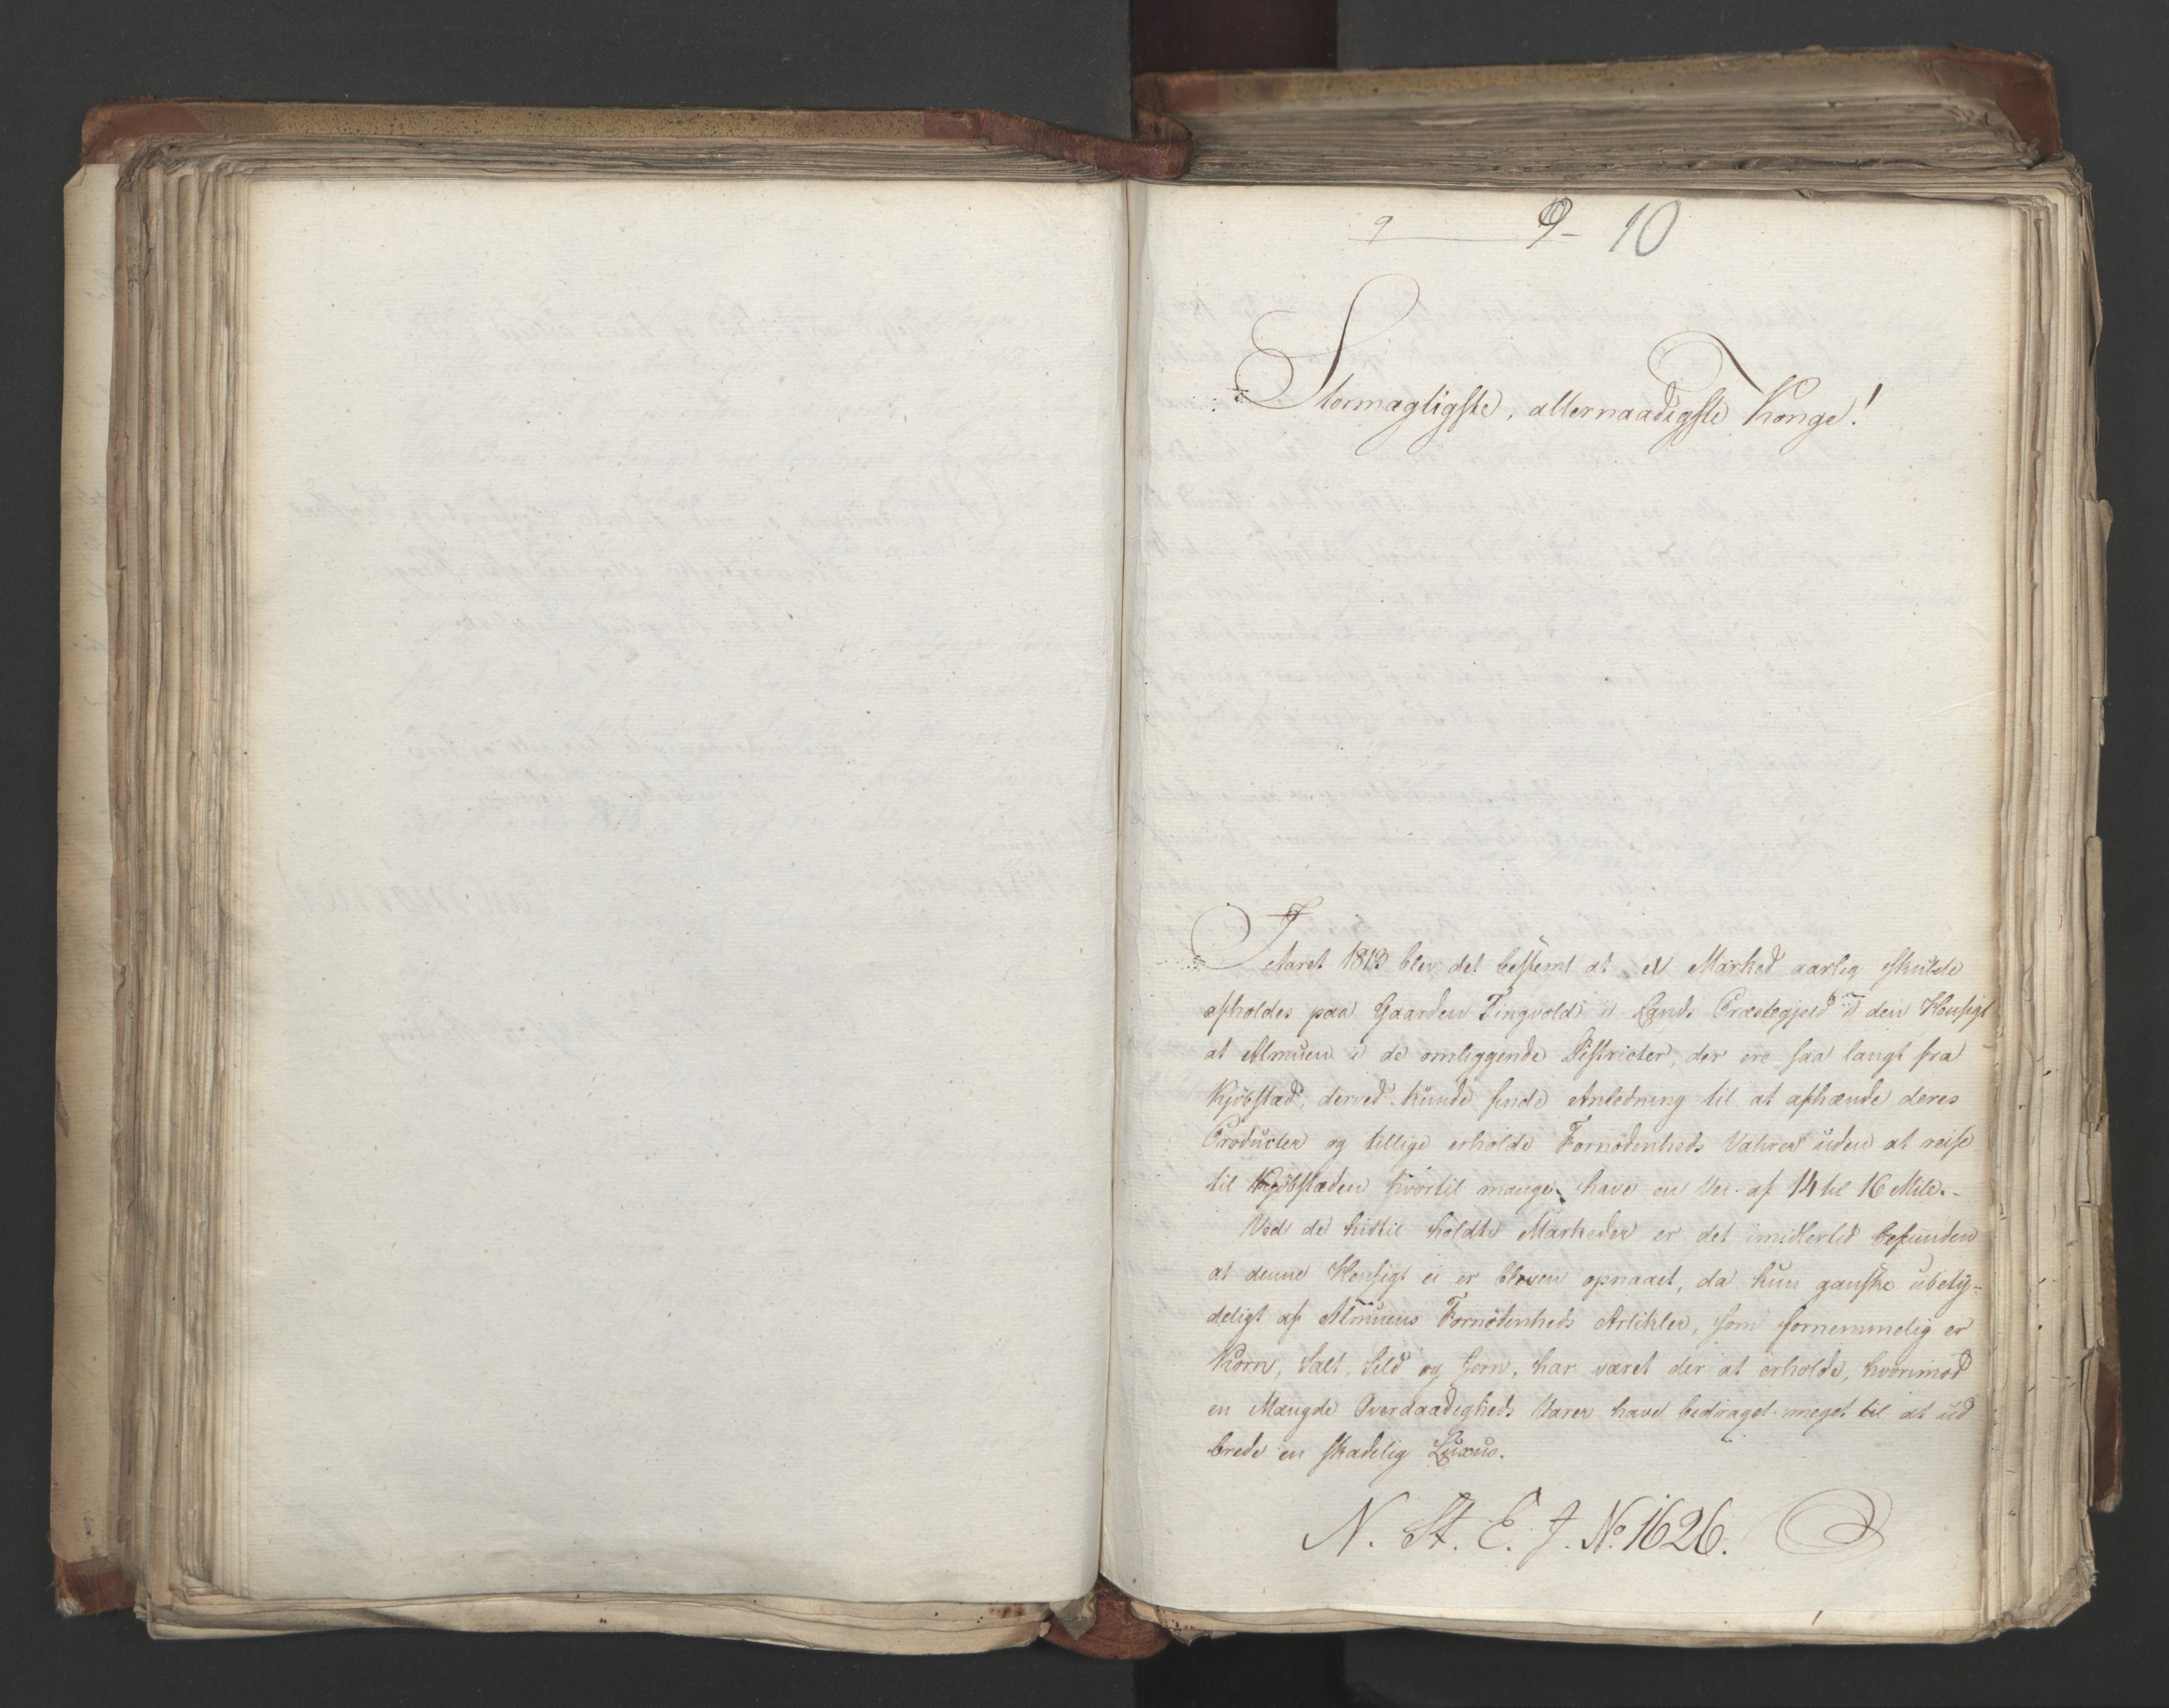 9 9- 10
Stormægtigste, allernaadigste Konge!
I Aaret 1813 blev det bestemt at et Marked aarlig skulde
afholdes paa Gaarden Tingvold i Lands Præstegjeld i den Hensigt
at Almuen i de omliggende Districter, der ere saa langt fra
Kjöbstad, derved kunde finde Anledning til at afhænde deres
Producter og tillige erholde Fornödenheds Vahrer uden at reise
til Kjöbstæden hvortil mange have en Vei af 14 til 16 Mile.-
Ved de hidtil holdte Markeder er det imidlertid befunden
at denne Hensigt ei er bleven opnaaet, da kun ganske ubety-
deligt af Almuens Fornödenheds Artikler, som fornemmelig er
Korn, Salt, Sild og Jern, har været der at erholde, hvorimod
en Mængde Overdaadigheds Varer have bidraget meget til at ud
brede en skadelig Luxus.
N. St. E. J. No. 1626.